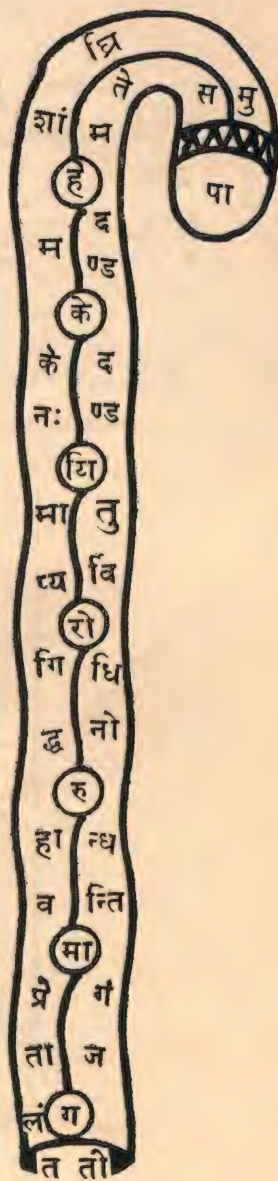 घ्रि
ते स मु
शां म
पा
हे
द
म ण्ड
के
के द
नः ण्ड
यि
मा तु
प्य र्वि
रो
गि धि
द्ध नो
रु
हा न्ध
व न्ति
मा
प्रे र्ग
ता ज
लां ग
त ती